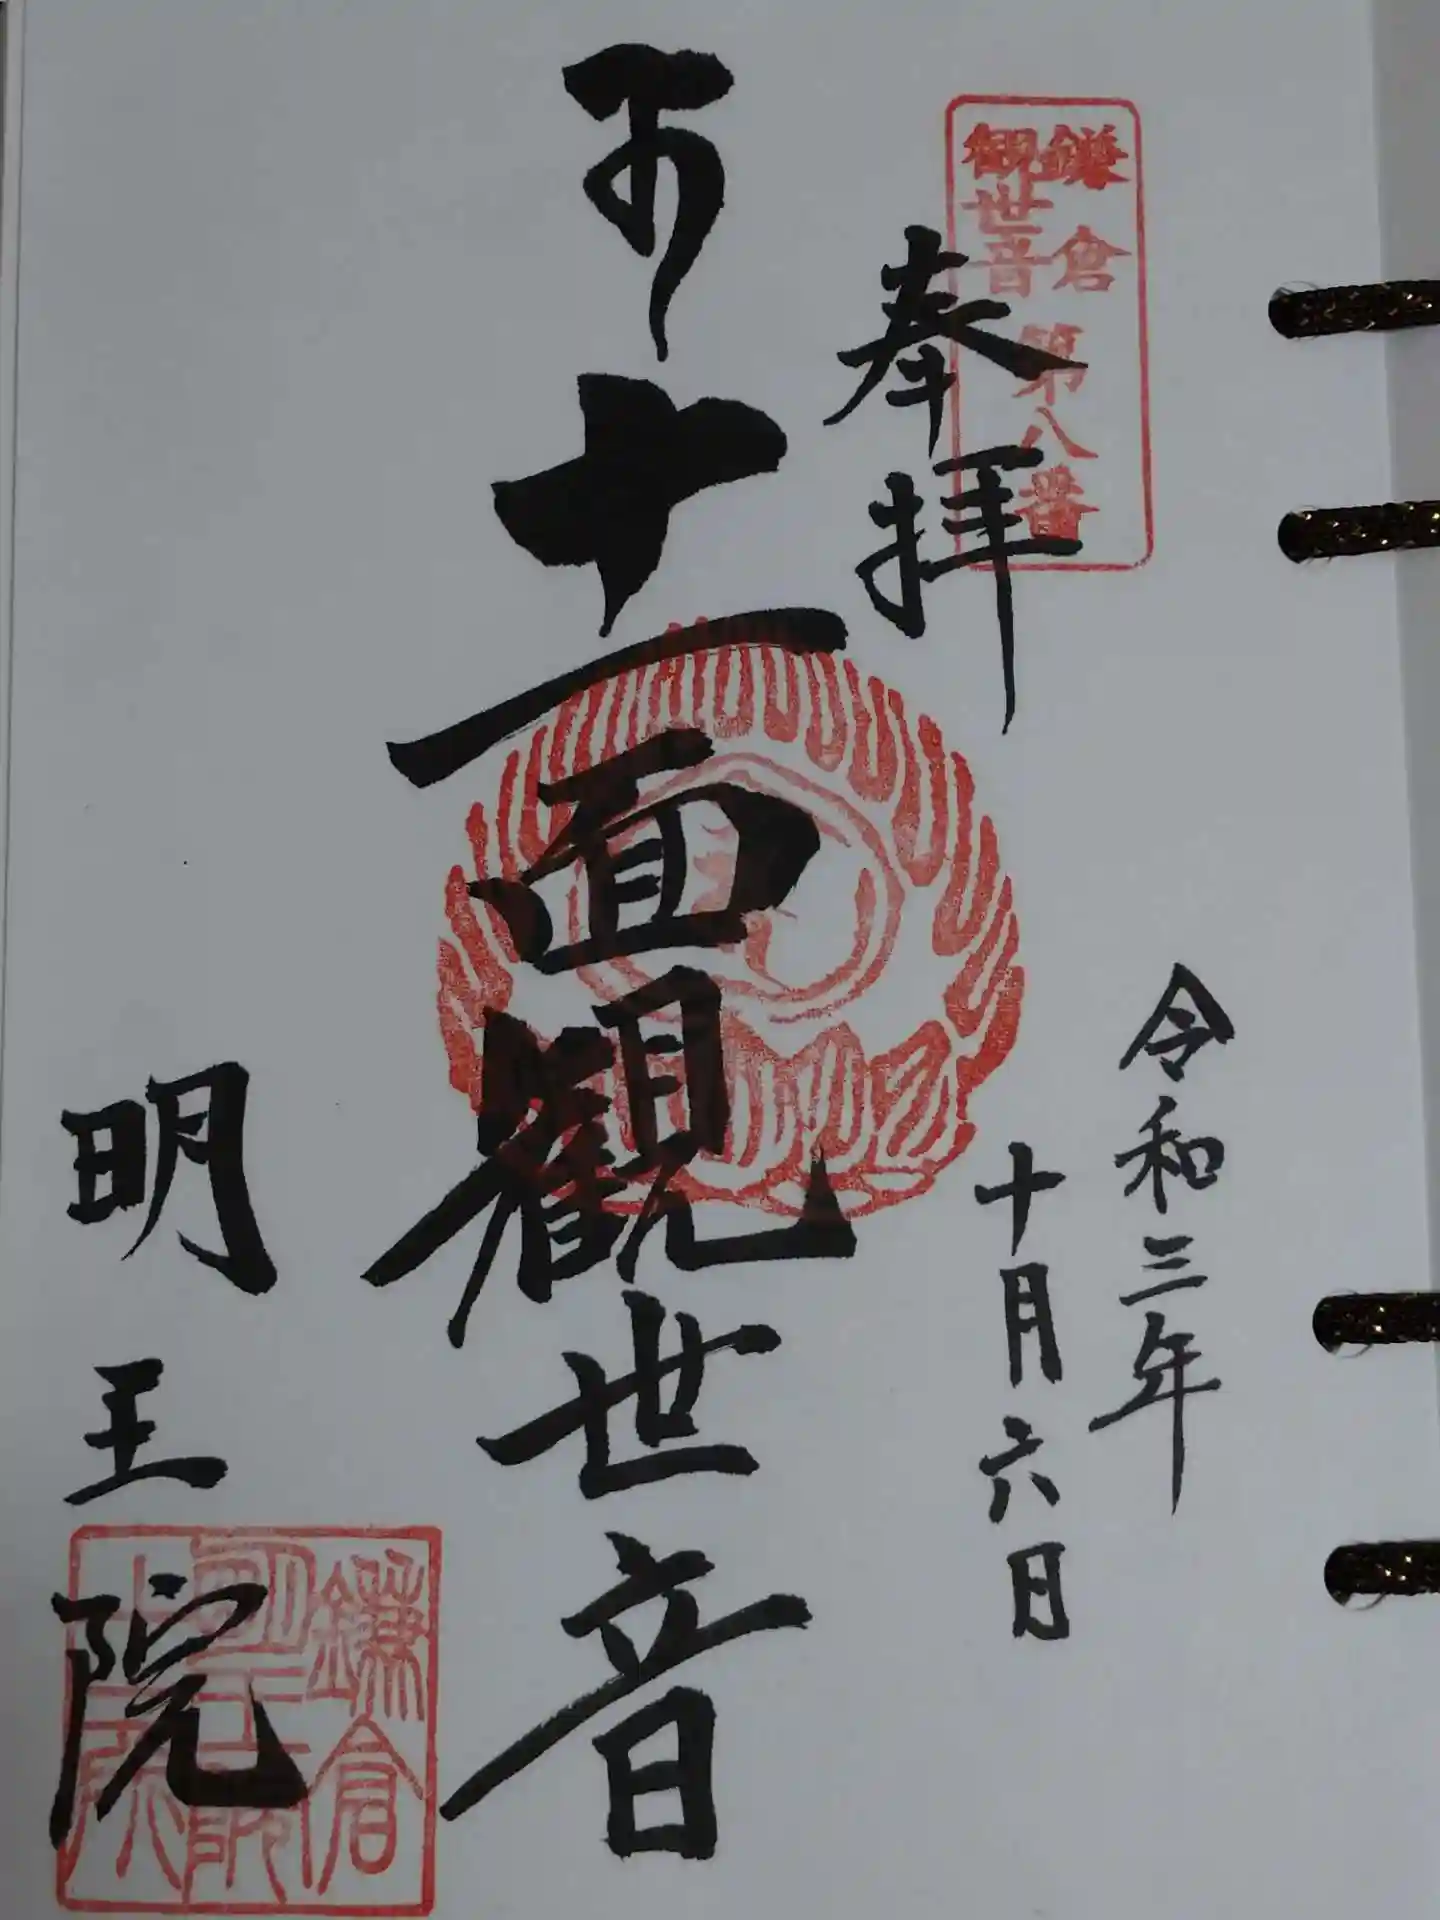 鎌倉
観世音
第八番
奉拝
令和三年
十月六日
十一面観世音
明王院
鎌倉